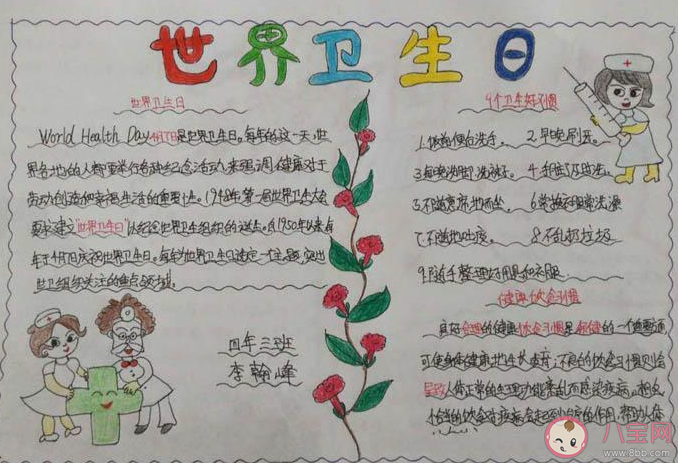 世界卫生日
世界卫生日
World Health Day 4月7日是世界卫生日。每年的这一天,世
界各地的人都要举行各种纪念活动,来强调健康对于
劳动创造和幸福生活的重要性。1948年第一届世界卫生大会
建立"世界卫生日"以纪念世界卫生组织的诞生。自1950年以来每
年4月7日庆祝世界卫生日。每年世界卫生日选定一个主题,突出
世卫组织关注的重点领域。
四年三班
李翰峰
9个卫生好习惯
1.饭前便后洗手。 2.早晚刷牙。
3.每晚洗脚,洗袜子。 4.
5.不随意席地而坐。 6常换衣服常洗澡
7.不随地吐痰。 8不乱扔垃圾
9.随手整理好用具和衣服
健康饮食习惯
良好合理的健康饮食习惯是保健的一个重要方面
可使身体健康地生长、发育;不良的饮食习惯则会
导致人体正常的生理功能紊乱而感染疾病。相反
恰当的饮食对疾病会起到治疗的作用,帮助人体
八宝网
www.8bb.com